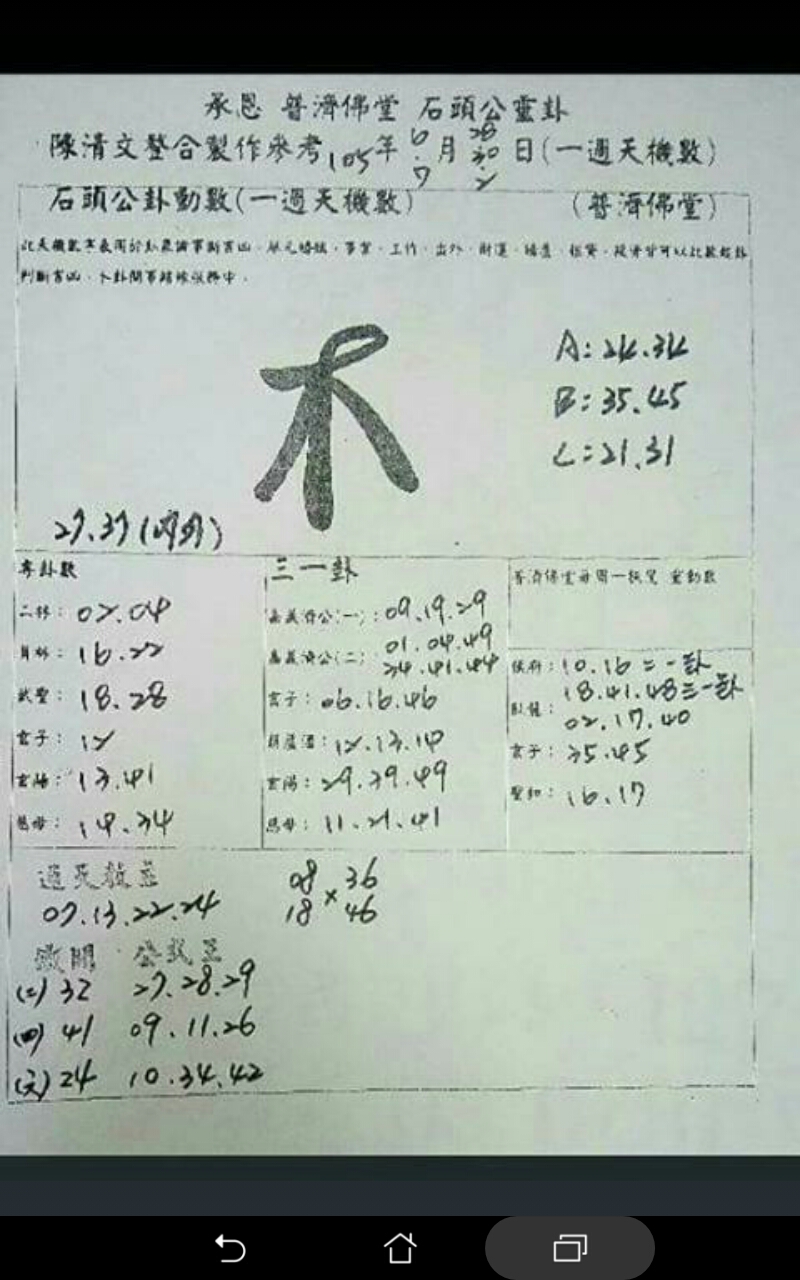 承恩 普濟佛堂 石頭公靈卦
陳清文整合製作參考105年6.7月28.30.2日(一週天機數)
石頭公卦動數(一週天機數) (普濟佛堂)
判斷吉凶。
A:24.34
B:35.45
C:21.31
27.37
專卦數
二林:02.04
16.22
武聖:18.28
玄子:12
13.41
慈母:14.34
三一卦
嘉義濟公(一):09.19.29
嘉義濟公(二):01.04.49
34.41.44
玄子:06.16.46
葫蘆酒:12.13.14
29.39.49
11.21.41
普濟佛堂每周一
10.16二一卦
臥龍:18.41.48三一卦
02.17.40
玄子:35.45
16.17
通天教主
07.13.22.24
08 36
×
18 46
(二)32 27.28.29
(四)41 09.11.26
(六)24 10.34.42